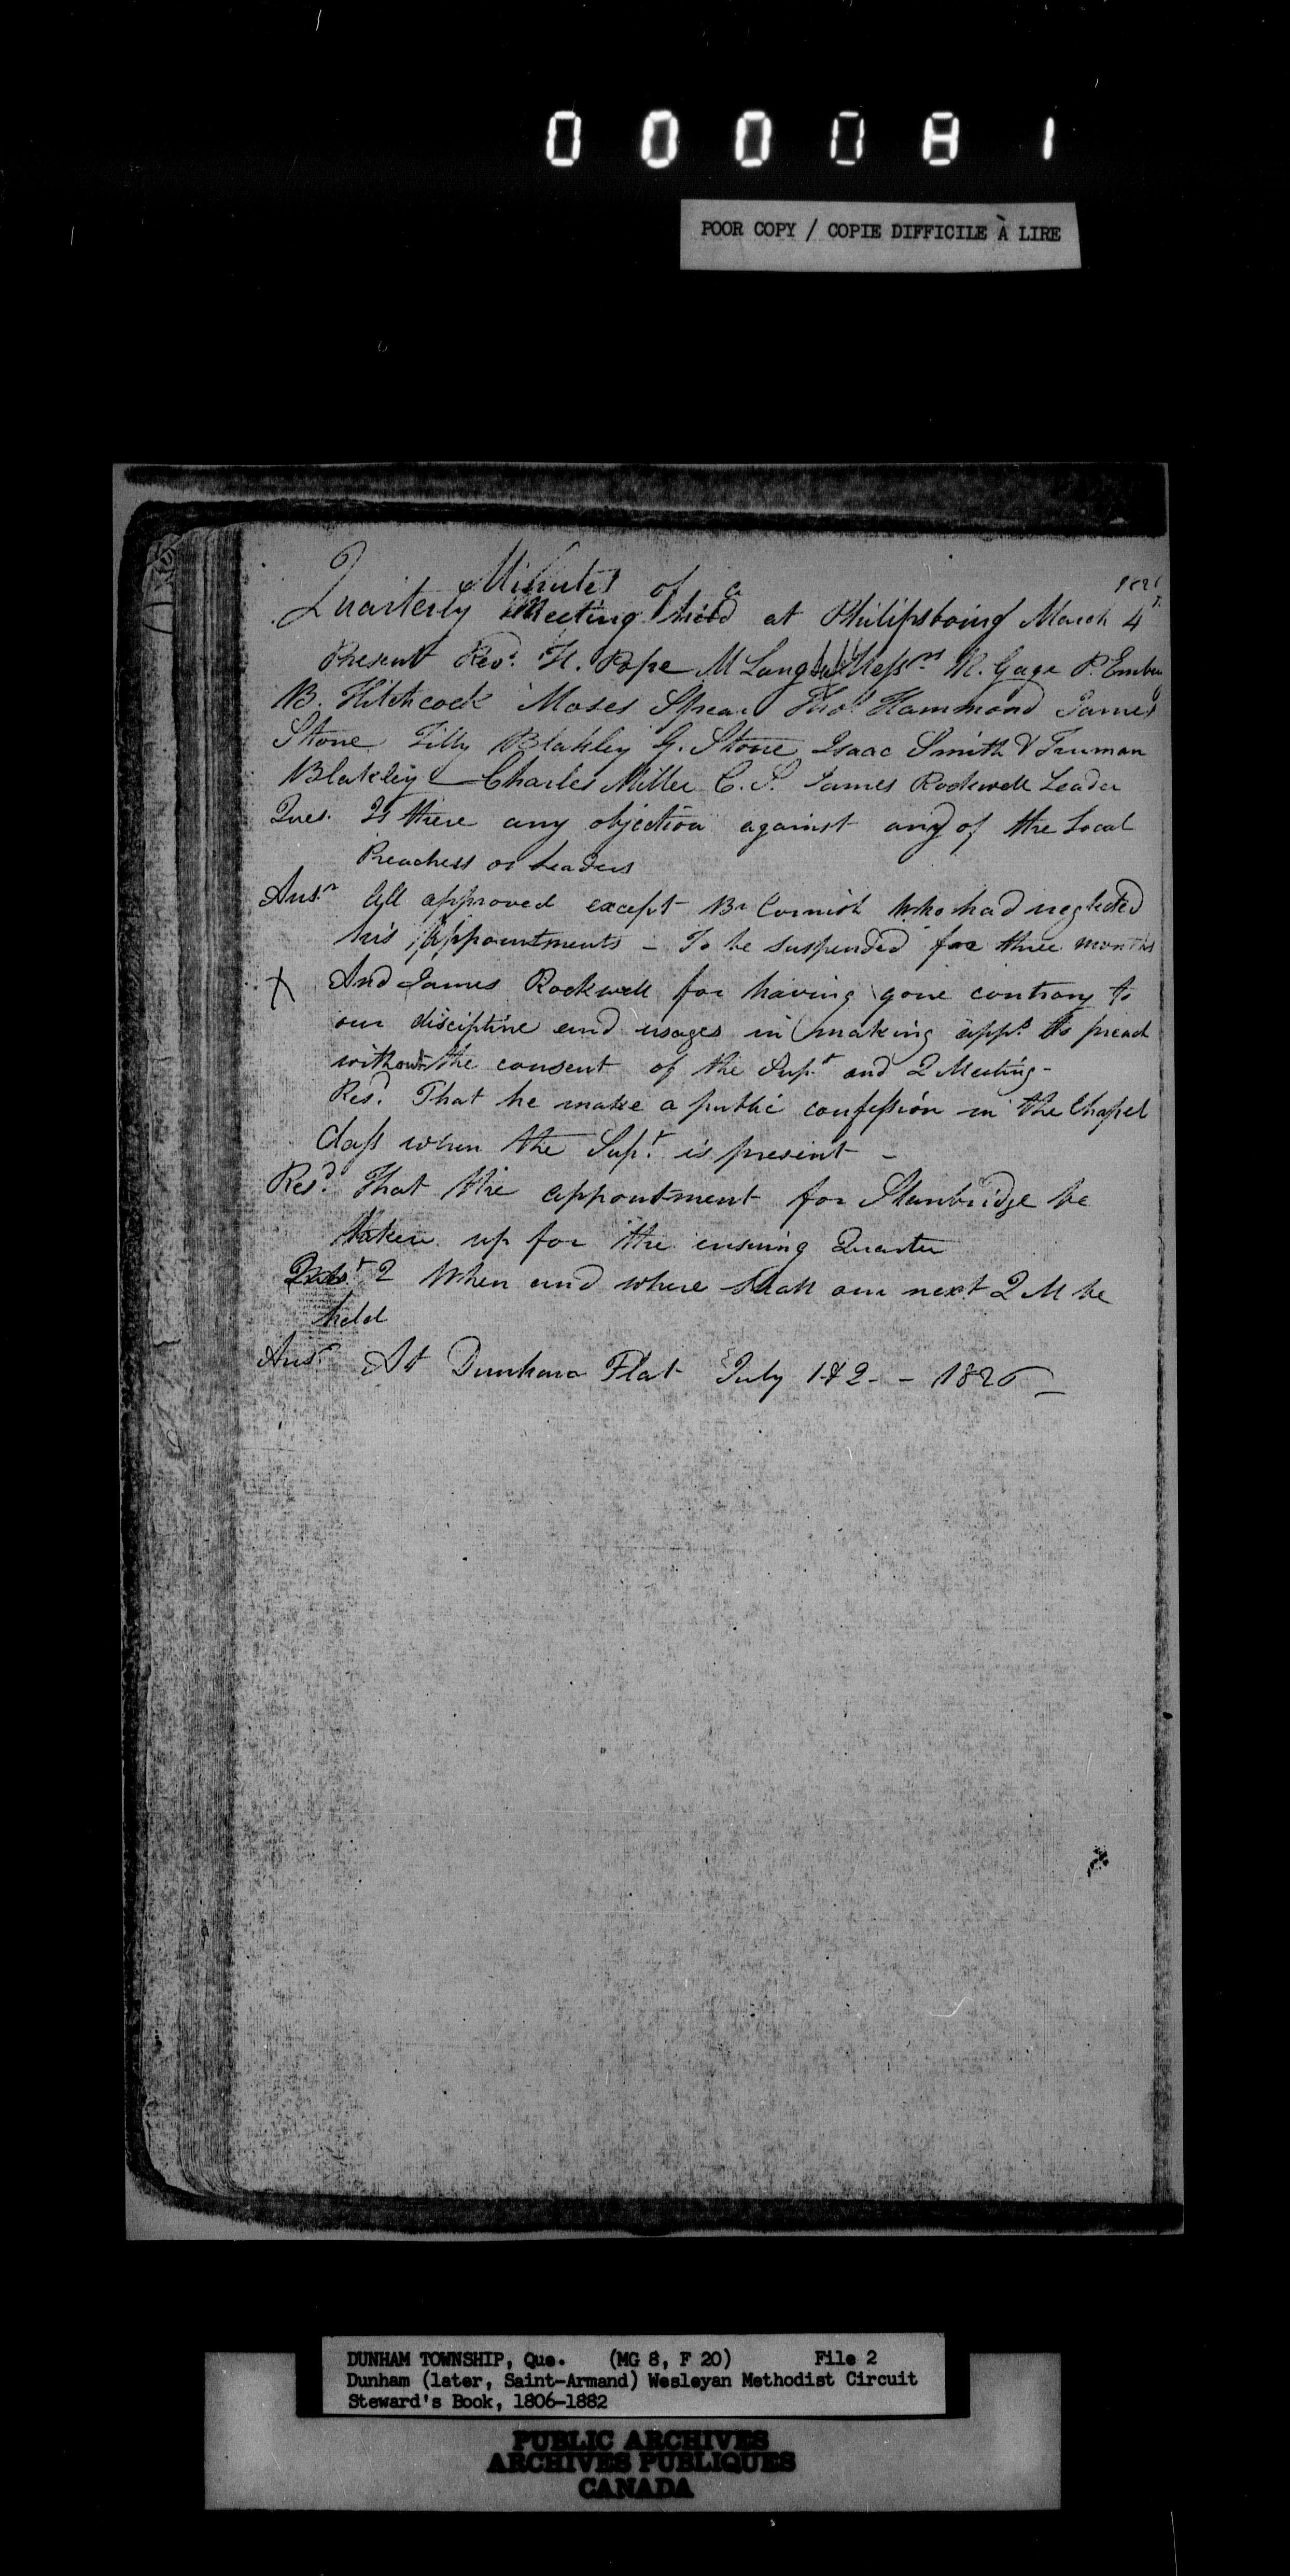 0 0 0 0 8 1
POOR COPY / COPIE DIFFICILE À LIRE
Minutes of a 1826
Quarterly Meeting held at Philipsbourg March 4
Present Revd. H. Pope M Lang Messrs R. Gage P. Embury
B. Hitchcock Moses Spear Thos. Hammond James
Stone Tilly Blakley G. Stone Isaac Smith & Truman
Blakley Charles Miller C. S. James Rockwell Leader
Ques. Is there any objection against any of the Local
Preachers or Leaders
Ansr All approved except Br Cornish who had neglected
his appointments - To be suspended for three months
X And James Rockwell for having gone contrary to
our discipline and usages in making appts to preach
without the consent of the Supt and Q Meeting -
Resd. That he make a public confession in the Chapel
Class when the Supt. is present -
Resd. That the appointment for Stanbridge be
taken up for the ensuing Quarter
Quest 2 When and where shall our next Q M be
held
Ansr At Dunham Flat July 1 & 2 - - 1826 -
DUNHAM TOWNSHIP, Que. (MG 8, F 20) File 2
Dunham (later, Saint-Armand) Wesleyan Methodist Circuit
Steward's Book, 1806-1882
PUBLIC ARCHIVES
ARCHIVES PUBLIQUES
CANADA